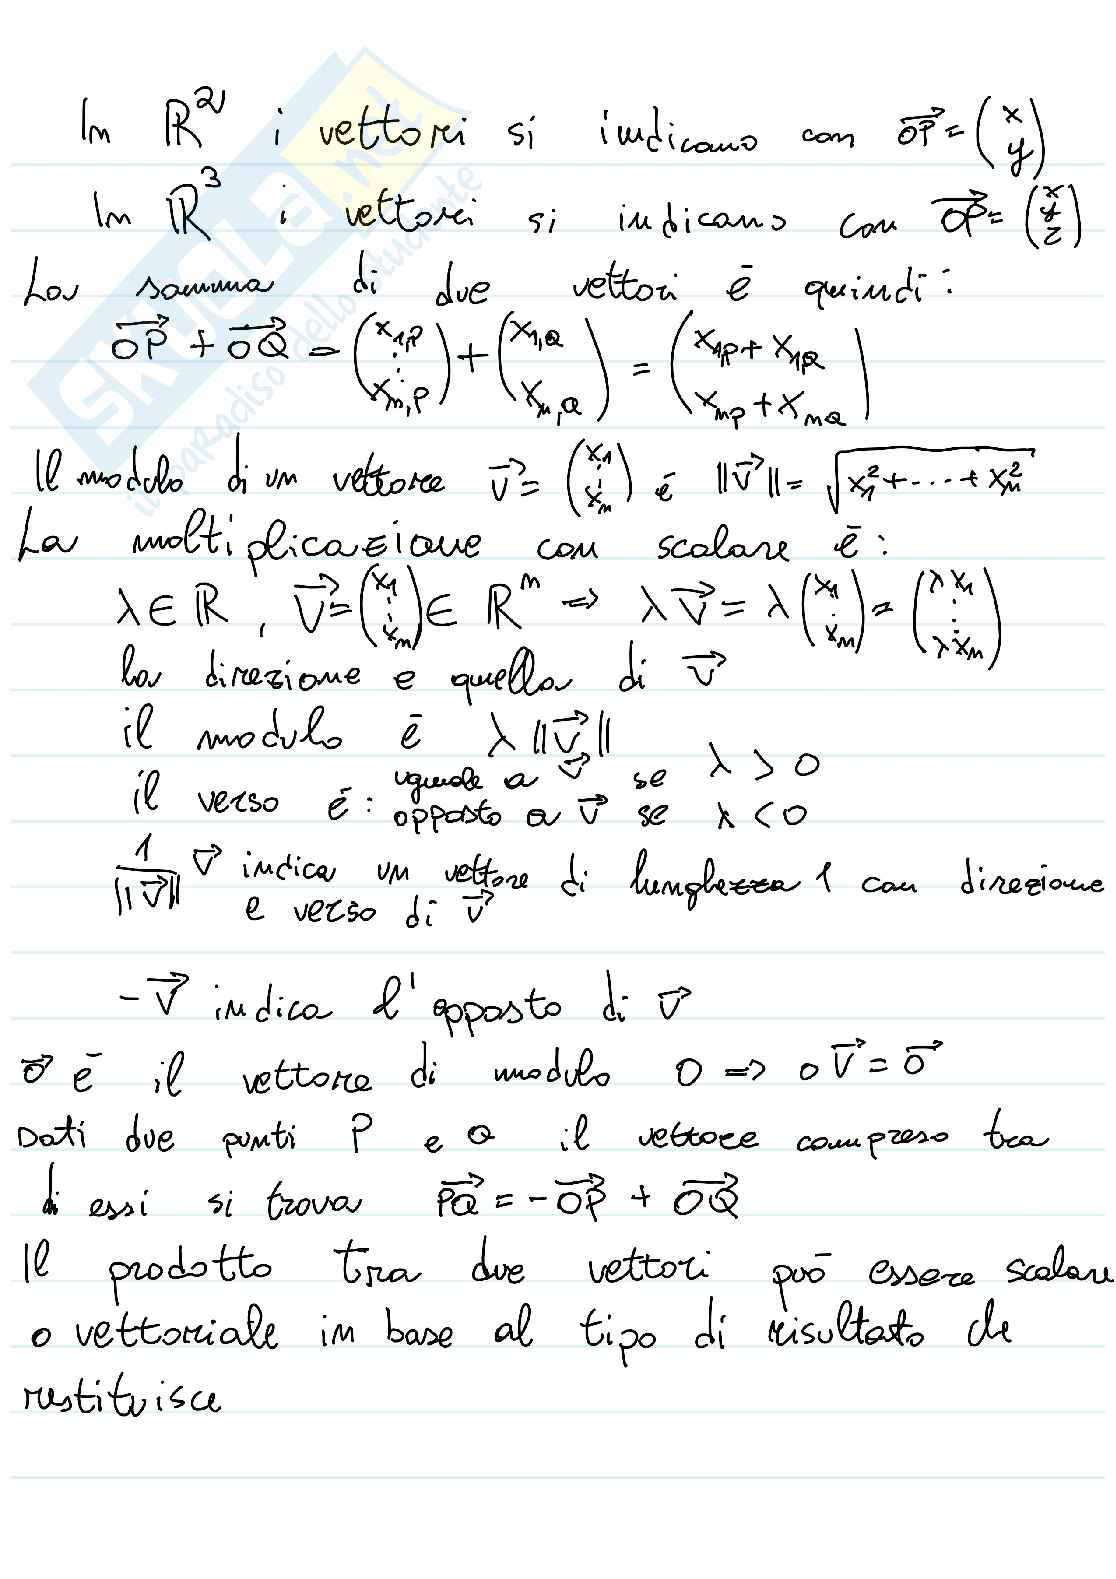 In ℝ² i vettori si indicano con OP⃗ = (x y)
In ℝ³ i vettori si indicano con OP⃗ = (x y z)
La somma di due vettori è quindi:
OP⃗ + OQ⃗ = (x₁,P ⋮ xₙ,P) + (x₁,Q xₙ,Q) = (x₁P + x₁Q xₙP + xₙQ)
Il modulo di un vettore v⃗ = (x₁ ⋮ xₙ) è ||v⃗|| = √(x₁² + ... + xₙ²)
La moltiplicazione con scalare è:
λ ∈ ℝ, v⃗ = (x₁ ⋮ xₙ) ∈ ℝⁿ => λv⃗ = λ(x₁ ⋮ xₙ) = (λx₁ ⋮ λxₙ)
la direzione e quella di v⃗
il modulo è λ ||v⃗||
il verso è: uguale a v⃗ se λ > 0
opposto a v⃗ se λ < 0
1/||v⃗|| v⃗ indica un vettore di lunghezza 1 con direzione
e verso di v⃗
-v⃗ indica l'opposto di v⃗
0⃗ è il vettore di modulo 0 => 0v⃗ = 0⃗
Dati due punti P e Q il vettore compreso tra
di essi si trova PQ⃗ = -OP⃗ + OQ⃗
Il prodotto tra due vettori può essere scalare
o vettoriale in base al tipo di risultato che
restituisce
SKUOLA.net
il paradiso dello studente